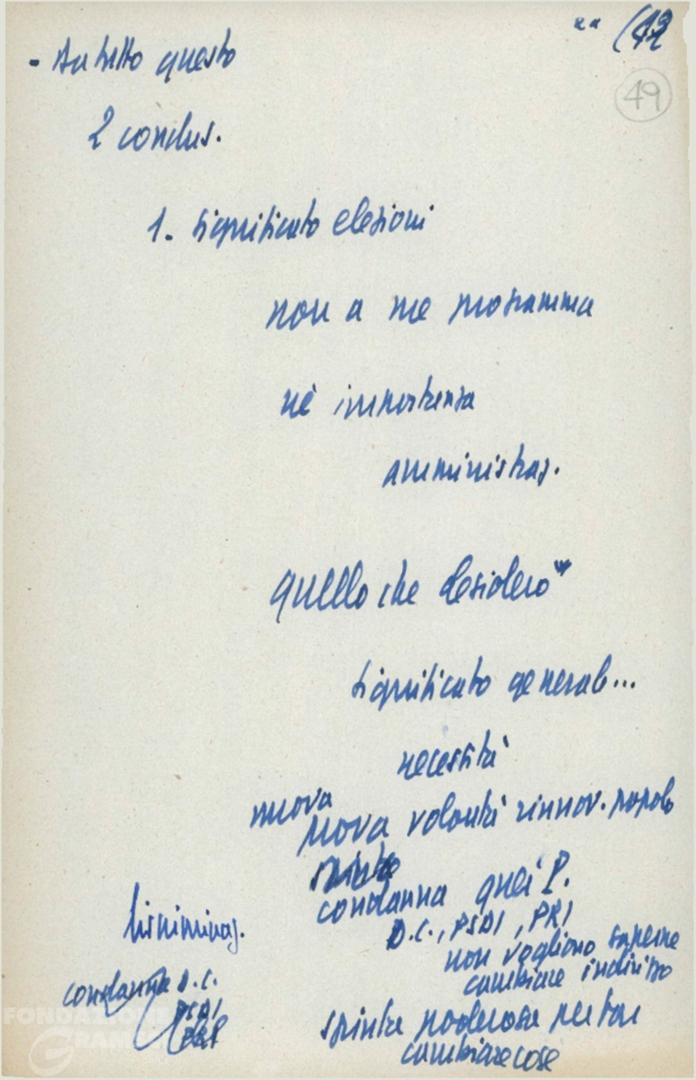 " " (12
49
- Da tutto questo
2 conclus.
1. significato elezioni
non a me programma
né importanza
amministraz.
quello che desidero
significato general...
necessità
nuova
prova volontà rinnov. popolo
spinta
condanna quei P.
D.C., PSDI, PRI
non vogliono saperne
cambiare indirizzo
discriminaz.
condanna D.C.
PSDI
PRI
spinta poderosa per far
cambiare cose
FONDAZIONE
GRAMSCI